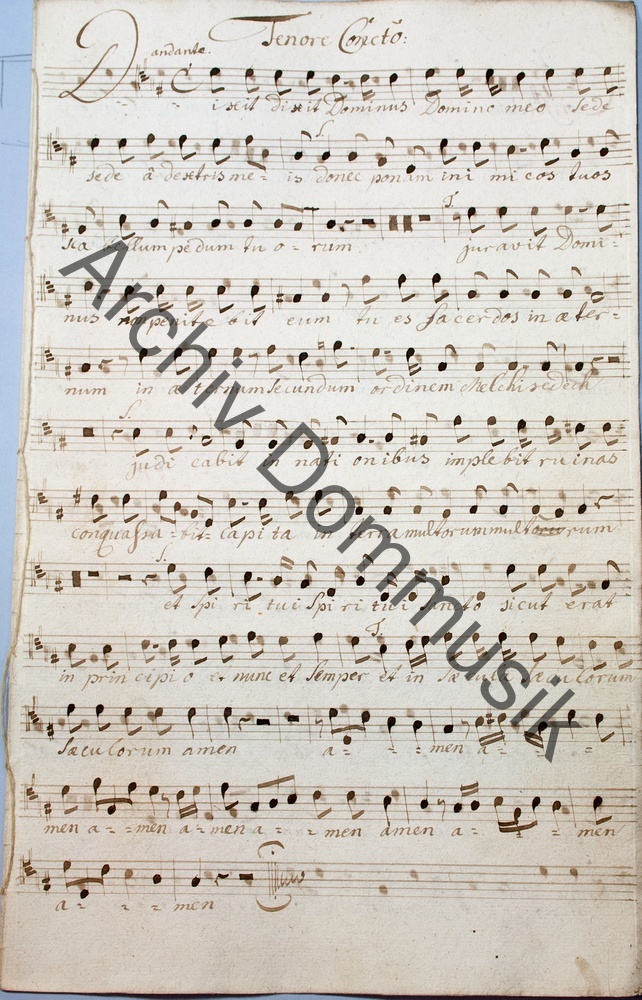 Tenore Concto:
andante.
Dixit dixit Dominus Domino meo sede
S.
sede a dextris me - is donec ponam ini mi cos tuos
T.
sca bellum pedum tu o - rum juravit Domi -
nus non penite bit eum tu es sacerdos in æter -
num in æ ternum secundum ordinem Melchisedech
S.
judi cabit in nati onibus implebit ruinas
conquassa - bit - capi ta in terra multorum multorum
S.
et Spi ri tui Spi ri tui sancto sicut erat
T.
in prin cipi o et nunc et semper et in sæcula sæculorum
sæculorum amen a - - - men a - - -
men a - - men a - men a - - men amen a - - men
a - - - men
Archiv Dommusik